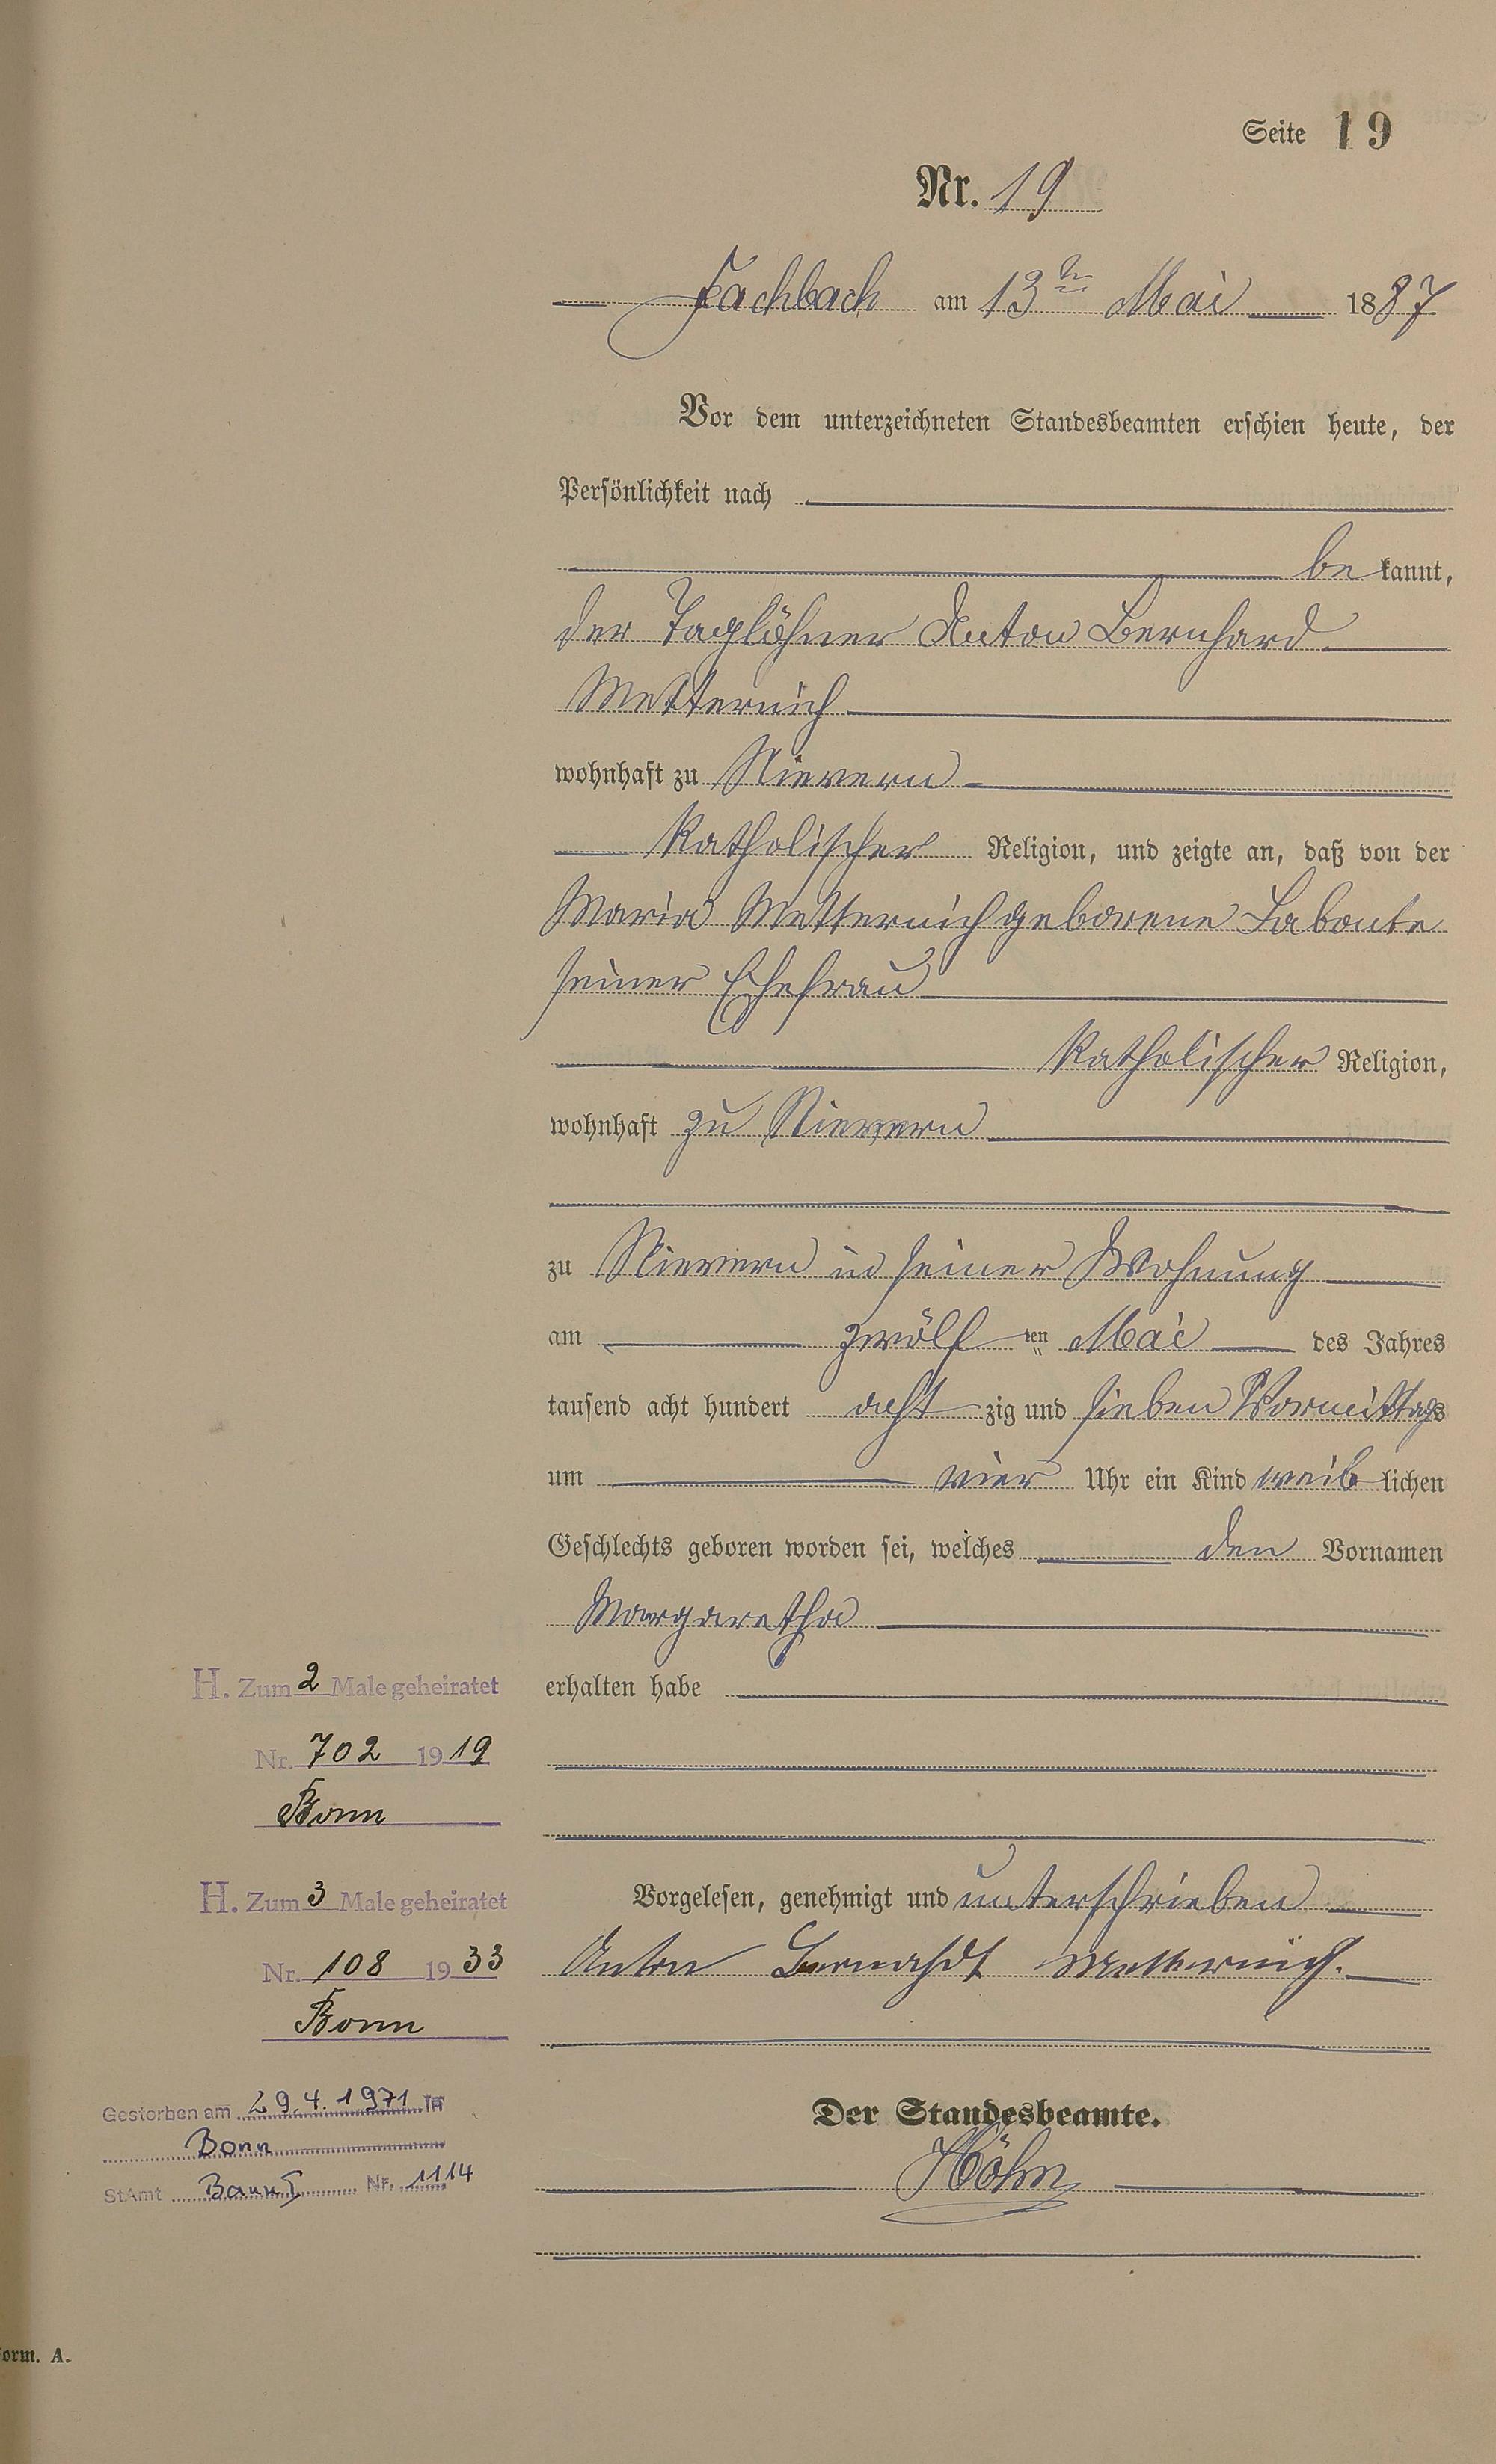 Seite 19
Nr. 19
Fachbach am 13ten Mai 1887
Vor dem unterzeichneten Standesbeamten erschien heute, der
Persönlichkeit nach
be kannt,
der Taglöhner Anton Bernhard
Metternich
wohnhaft zu Nievern
Katholischer Religion, und zeigte an, daß von der
Maria Metternich geborene Labonte
seiner Ehefrau
Katholischer Religion,
wohnhaft zu Nievern
zu Nievern in seiner Wohnung
am zwölf ten Mai des Jahres
tausend acht hundert acht zig und sieben Vormittags
um vier Uhr ein Kind weib lichen
Geschlechts geboren worden sei, welches den Vornamen
Margaretha
erhalten habe
Vorgelesen, genehmigt und unterschrieben
Anton Bernahdt Metternich.
Der Standesbeamte.
Höhn
H. Zum 2 Male geheiratet
Nr. 702 1919
Bonn
H. Zum 3 Male geheiratet
Nr. 108 1933
Bonn
Gestorben am 29.4.1971 in
Bonn
StAmt Bonn I Nr. 1114
orm. A.